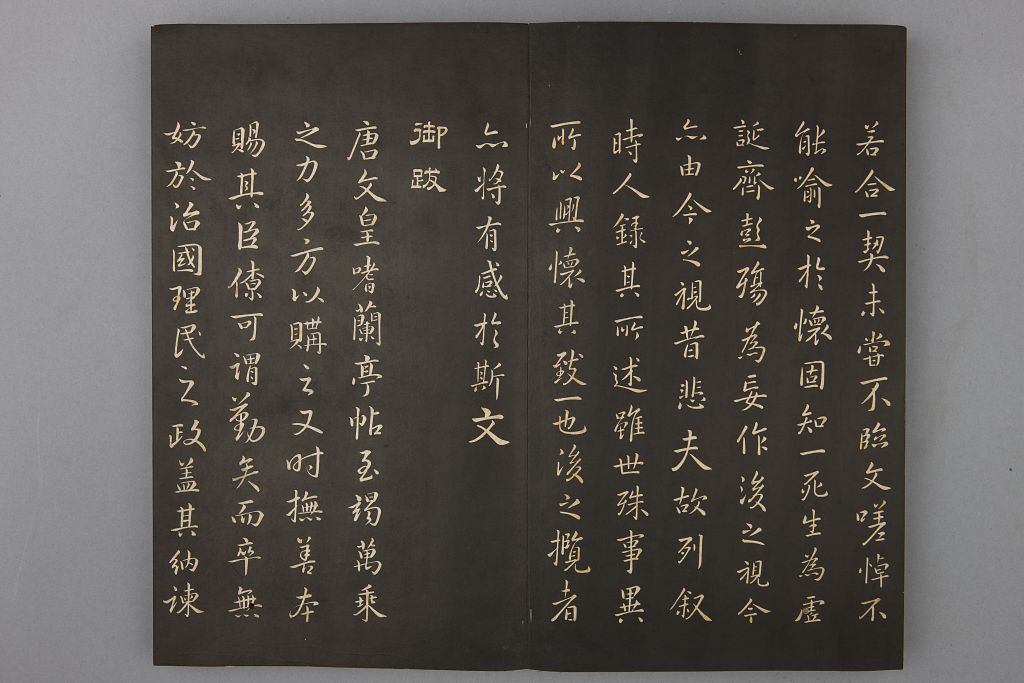 若合一契未嘗不臨文嗟悼不
能喻之於懷固知一死生為虛
誕齊彭殤為妄作後之視今
亦由今之視昔悲夫故列叙
時人錄其所述雖世殊事異
所以興懷其致一也後之攬者
亦將有感於斯文
御跋
唐文皇嗜蘭亭帖至竭萬乘
之力多方以購之又时撫善本
賜其臣僚可謂勤矣而卒無
妨於治國理民之政盖其納諫